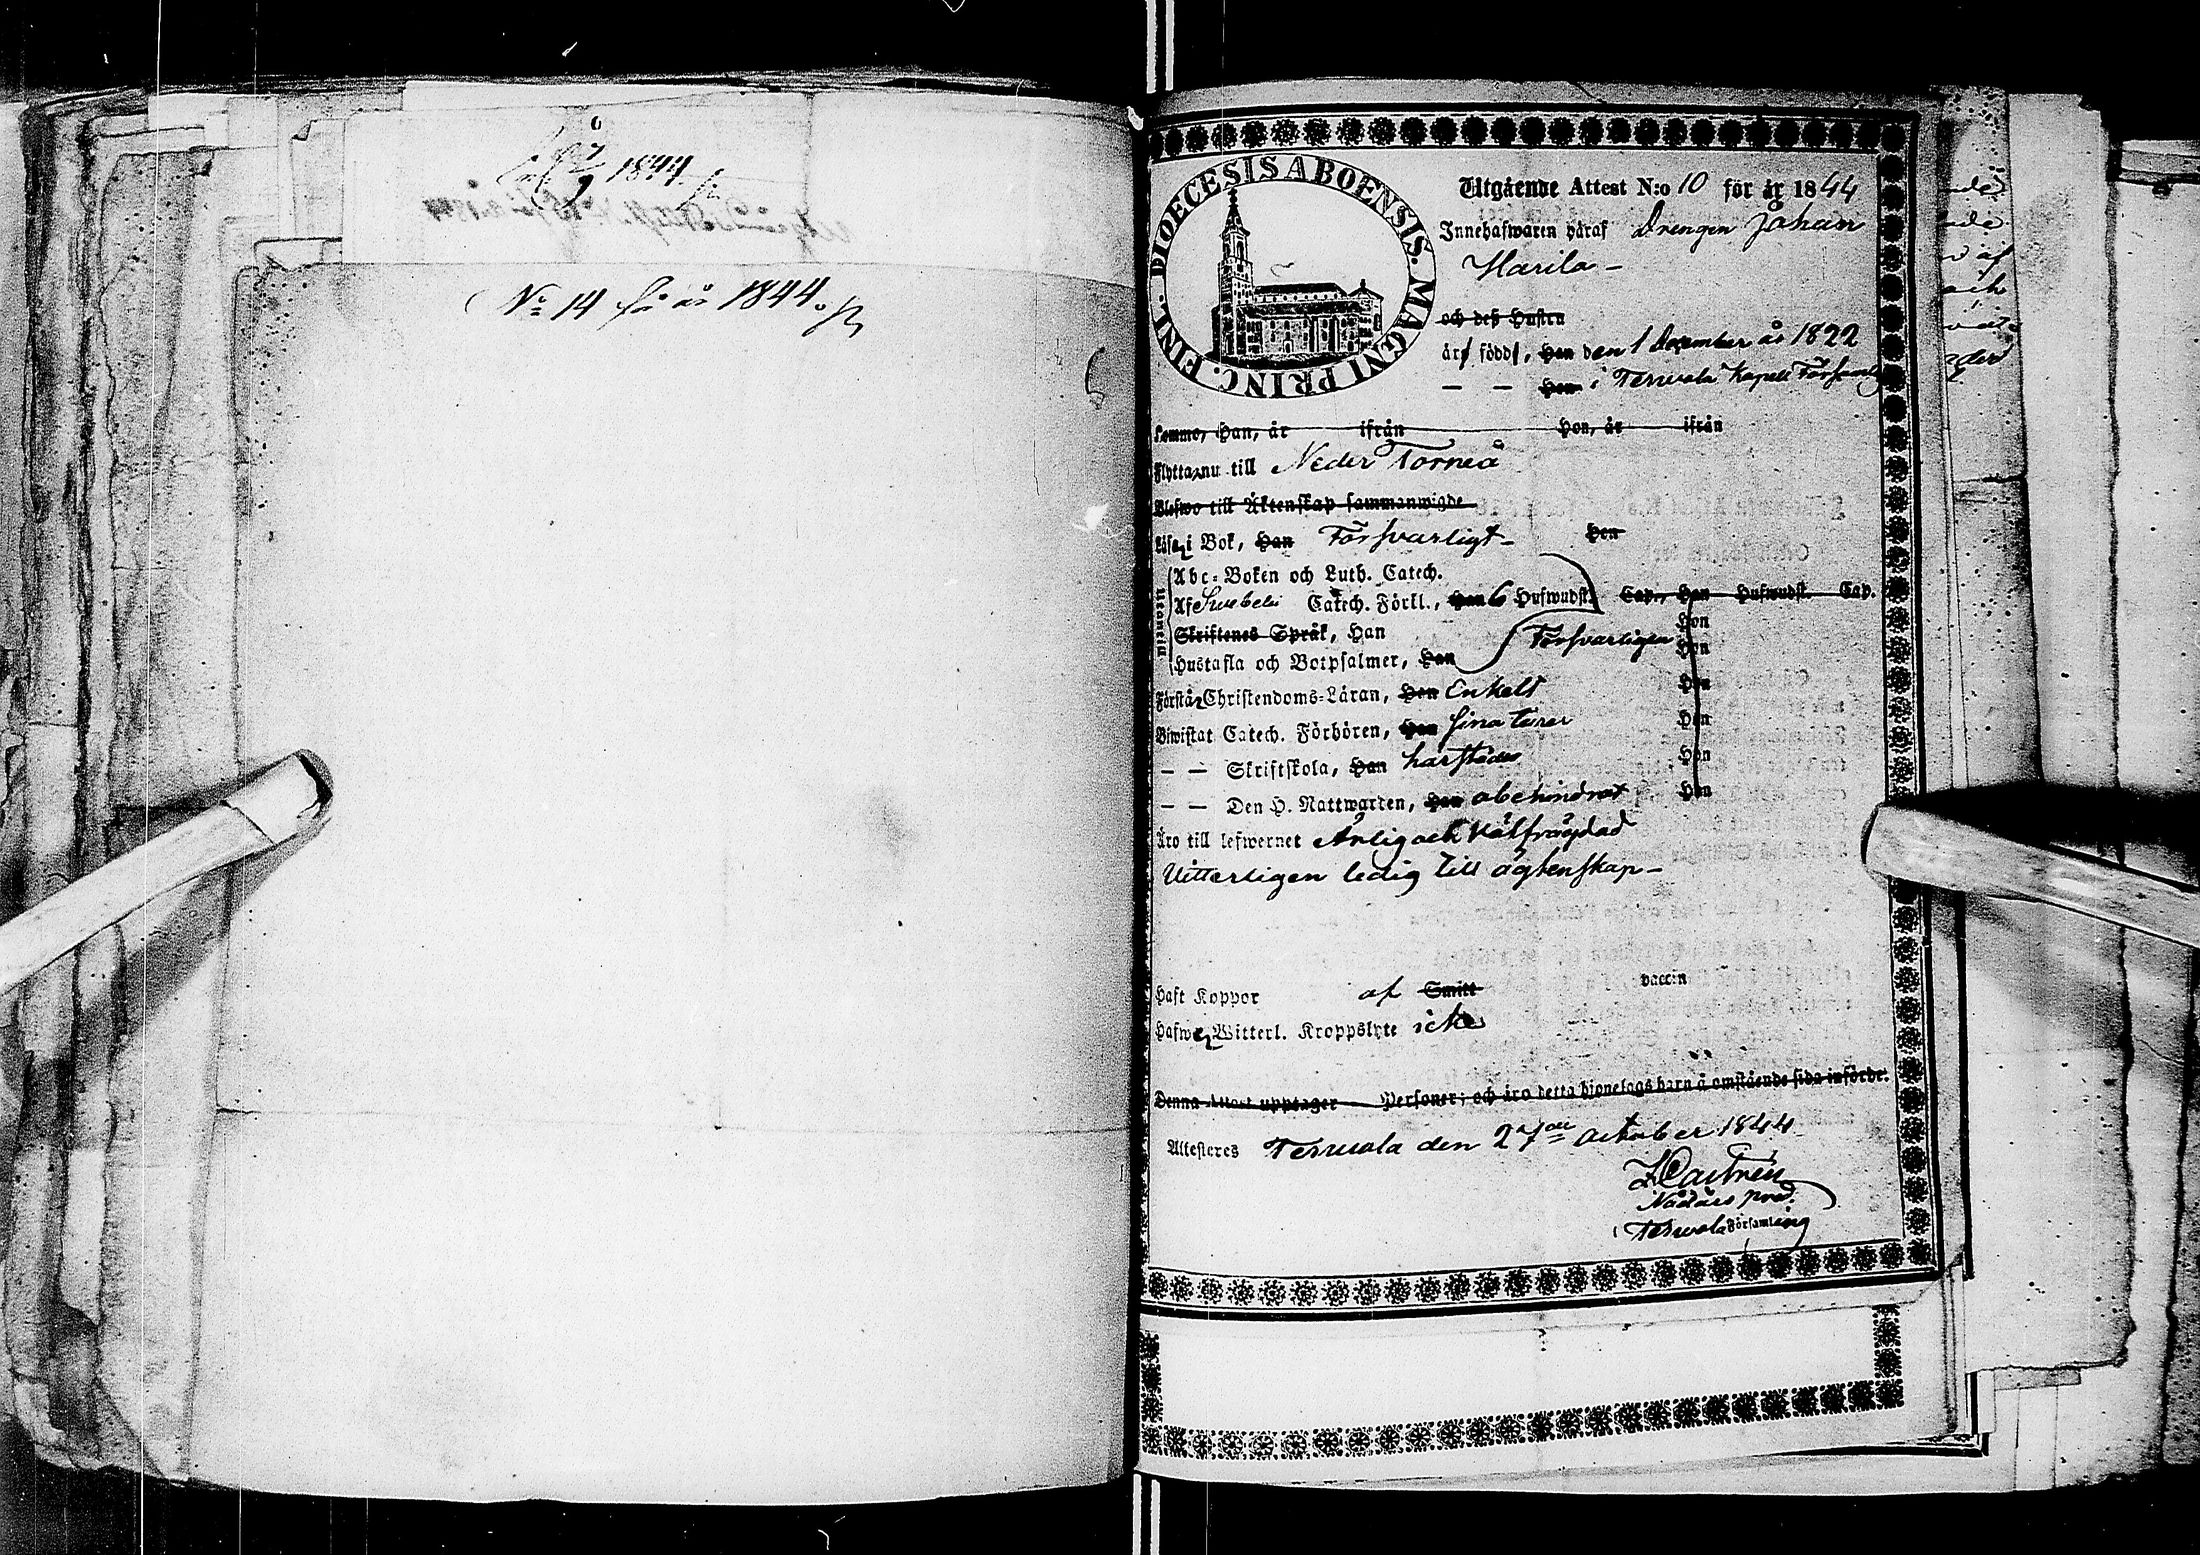 1844
No 14 för år 1844.
DIOECESIS ABOENSIS. MAGNI PRINC. FINL.
Utgående Attest N:o 10 för år 1844
Innehafwaren häraf Drengen Johan
Harila -
och deß Hustru
är, född, Han den 1 December år 1822
— — Hon i Terwola Kapell Församlg
Komne, Han, år ifrån Hon, år ifrån
Flytta nu till Neder Torneå
Blefwo till Äktenskap sammanwigde
Läsa i Bok, Han Försvarligt - Hon
Utantill
Abc-Boken och Luth. Catech.
Af Swebelii Catech. Förkl., Han 6 Hufwudst. Cap., Hon Hufwudst. Cap.
Skriftenes Språk, Han Hon
Försvarligen
Hustafla och Botpsalmer, Han Hon
Förstår Christendoms-Läran, Han Enkelt Hon
Biwistat Catech. Förhören, Han sina turer Hon
— — Skriftskola, Han härstädes Hon
— — Den H. Nattwarden, Han obehindrat Hon
Äro till lefwernet Ärlig och Wälfrägdad
Witterligen ledig till ägtenskap -
Haft Koppor af Smitt vaccin
Hafwer Witterl. Kroppslyte icke
Denna Attest upptager Personer; och äro detta hjonelags barn å omstående sida införde.
Attesteres Terwola den 27de October 1844
Z Castrén
Nådårs pred.
i Terwola Församling